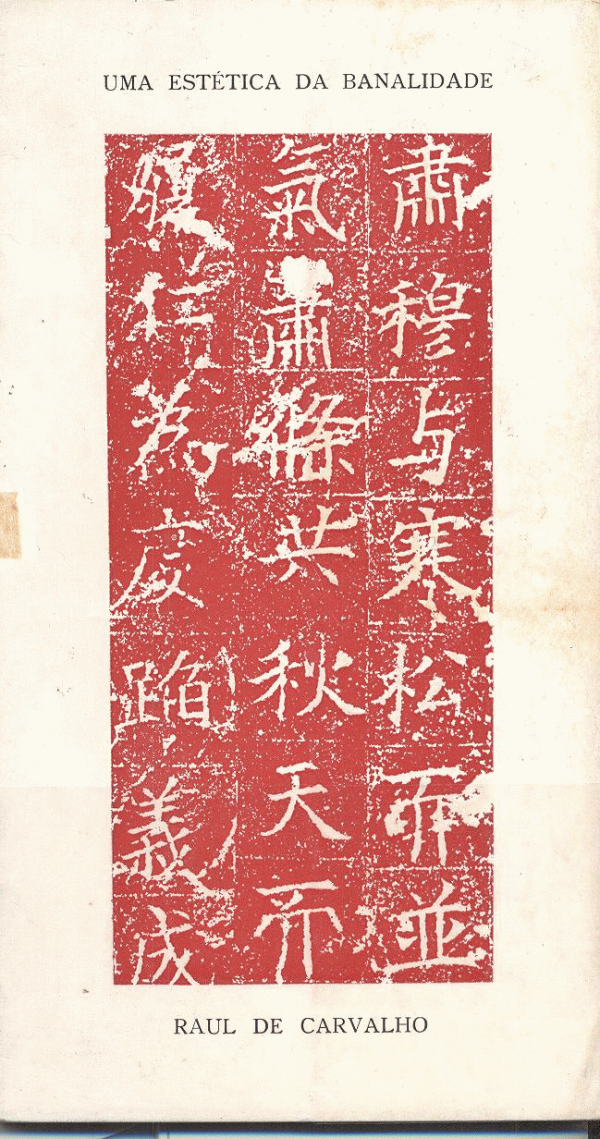 UMA ESTÉTICA DA BANALIDADE
肅穆与寒松而並
氣蕭條共秋天而
履信為度蹈義成
RAUL DE CARVALHO